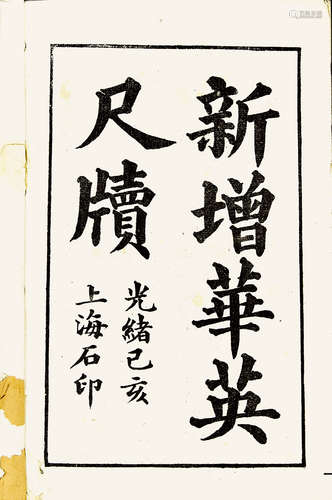 新增華英
尺牘
光緒己亥
上海石印